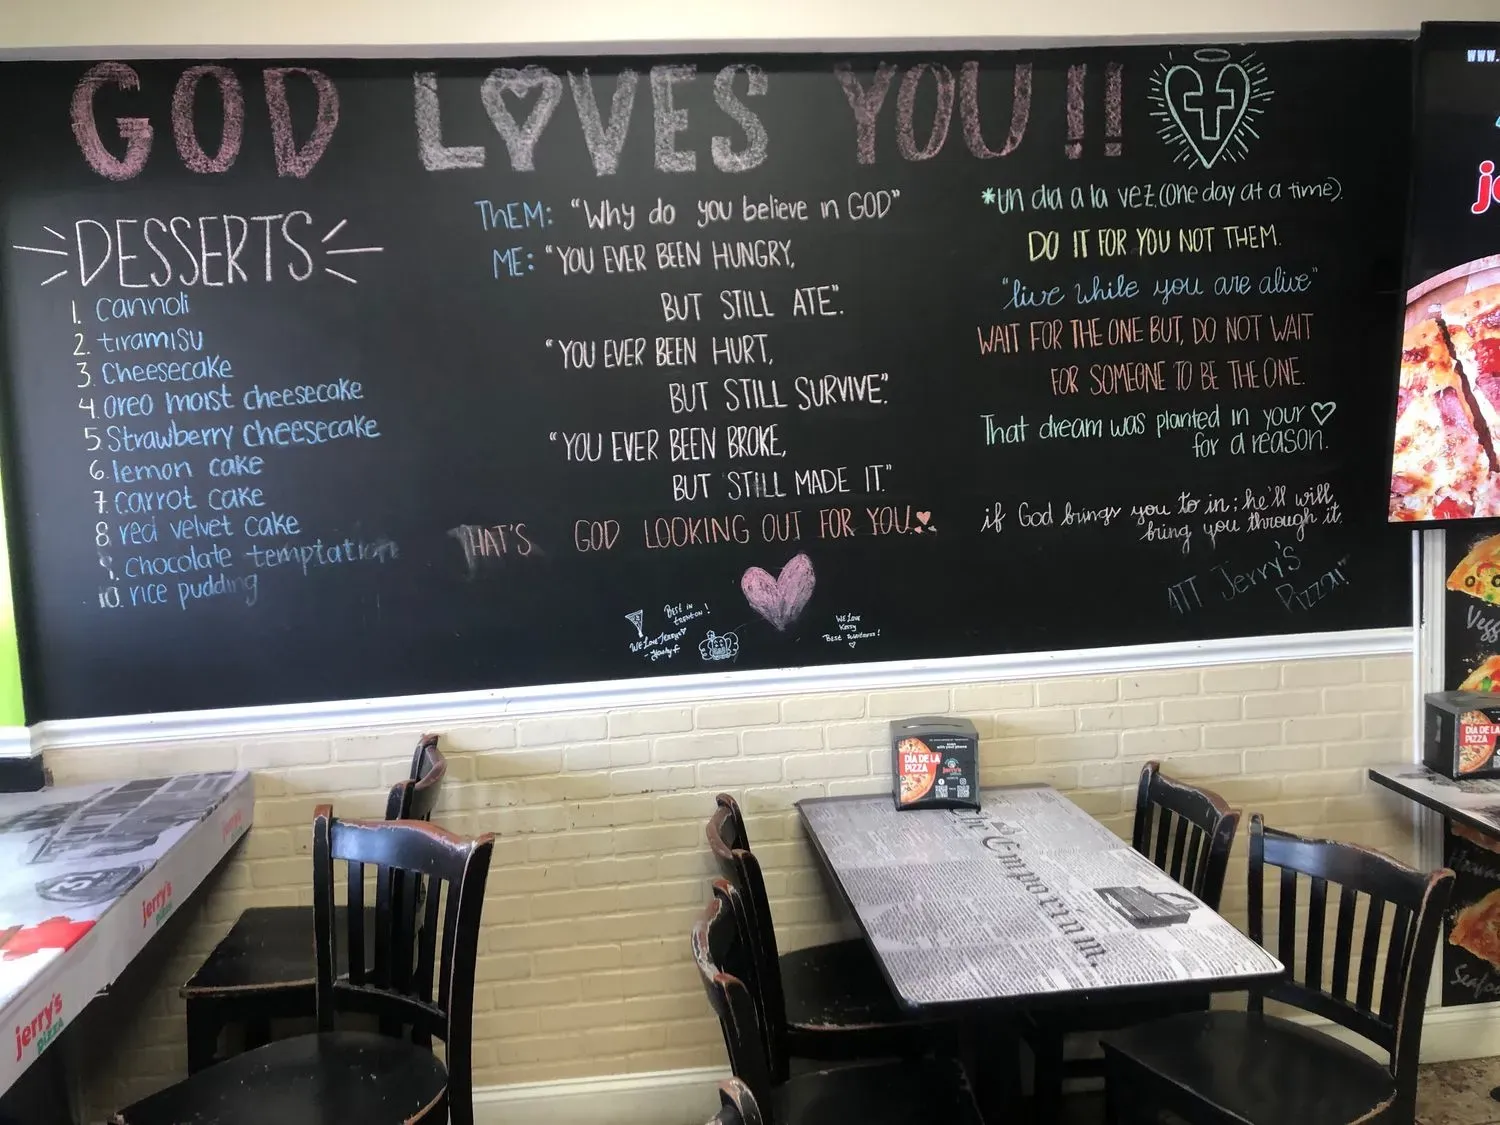 GOD LOVES YOU!!
DESSERTS
1. cannoli
2. tiramisu
3. Cheesecake
4. oreo moist cheesecake
5. Strawberry cheesecake
6. lemon cake
7. carrot cake
8. red velvet cake
9. chocolate temptation
10. rice pudding
THEM: "Why do you believe in GOD"
ME: "YOU EVER BEEN HUNGRY,
BUT STILL ATE".
"YOU EVER BEEN HURT,
BUT STILL SURVIVE".
"YOU EVER BEEN BROKE,
BUT STILL MADE IT."
THAT'S GOD LOOKING OUT FOR YOU.
BEST IN
TRENTON!
WE LOVE JERRYS
WE LOVE
Kerry
BEST
*un dia a la vez.(one day at a time).
DO IT FOR YOU NOT THEM.
"live while you are alive"
WAIT FOR THE ONE BUT, DO NOT WAIT
FOR SOMEONE TO BE THE ONE.
That dream was planted in your
for a reason.
if God brings you to in; he'll will
bring you through it.
ATT Jerry's
Pizza!!
WWW.
je
Vegg
DIA DE LA
PIZZA
jerry's
DIA DE LA
PIZZA
The Emporium.
jerry's
PIZZA
jerry's
PIZZA
Hawai
Seafoo